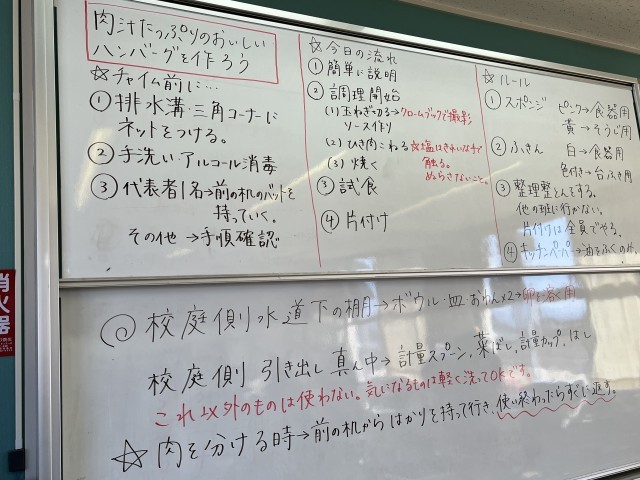 肉汁たっぷりのおいしい
ハンバーグを作ろう
☆チャイム前に…
①排水溝・三角コーナーに
ネットをつける。
②手洗い・アルコール消毒
③代表者1名→前の机のバットを
持っていく。
その他→手順確認
☆今日の流れ
①簡単に説明
②調理開始
(1)玉ねぎ切る→クロームブックで撮影
ソース作り
(2)ひき肉こねる ☆塩はきれいな手で
触る。
ぬらさないこと。
(3)焼く
③試食
④片付け
☆ルール
①スポンジ ピンク→食器用
黄→そうじ用
②ふきん 白→食器用
色付き→台ふき用
③整理整とんをする。
他の班に行かない。
片付けは全員でやる。
④キッチンペーパー→油をふくのみ
◎校庭側水道下の棚→ボウル・皿 おわん×2→卵を溶く用
校庭側 引き出し真ん中→計量スプーン、菜ばし、計量カップ、はし
これ以外のものは使わない。気になるものは軽く洗ってOKです。
☆肉を分ける時→前の机からはかりを持って行き、使い終わったらすぐに返す。
消火器